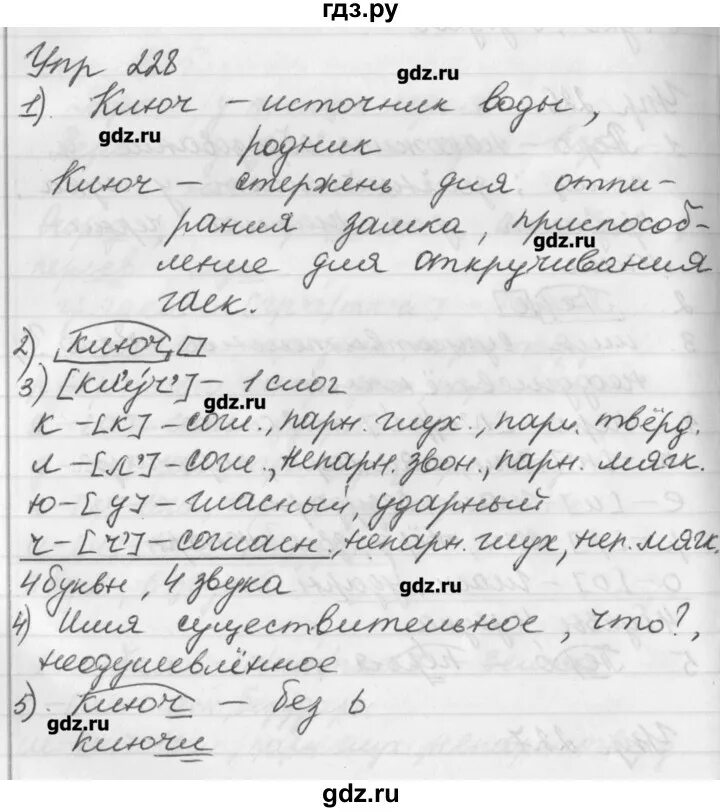 гдз.ру
Упр 228
gdz.ru
1). Ключ – источник воды,
gdz.ru
родник
Ключ – стержень для отпи-
рания замка, приспособ-
gdz.ru
ление для откручивания
гаек.
2) ключ
3) [кл'у́ч'] – 1 слог
gdz.ru
к – [к] – согл., парн. глух., парн. твёрд.
л – [л'] – согл., непарн. звон., парн. мягк.
ю – [у] – гласный, ударный
ч – [ч'] – согласн., непарн. глух, неп. мягк.
4 букви, 4 звука
gdz.ru
4) Имя существительное, что?,
неодушевлённое
5). ключ – без ь
gdz.ru
ключи
gdz.ru